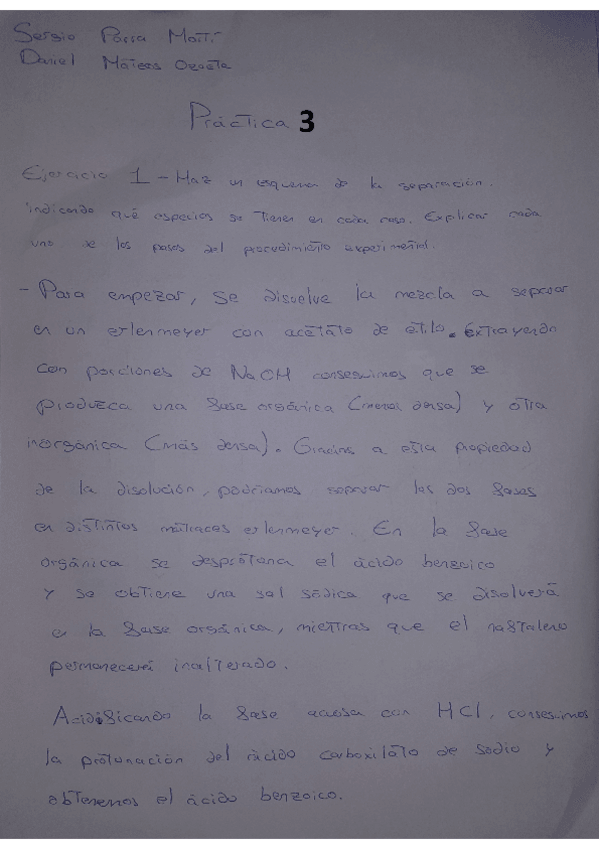 Sergio Parra
Daniel Mateos
Práctica 3
Ejercicio 1 - Haz un esquema de la separación.
indicando qué especies se tienen en cada caso. Explicar cada
uno de los pasos del procedimiento experimental.
- Para empezar, se disuelve la mezcla a separar
en un erlenmeyer con acetato de etilo. Extrayendo
con porciones de NaOH conseguimos que se
produzca una fase orgánica (menos densa) y otra
inorgánica (más densa). Gracias a esta propiedad
de la disolución, podríamos separar las dos fases
en distintos matraces erlenmeyer. En la fase
orgánica se desprotona el ácido benzoico
y se obtiene una sal sódica que se disolverá
en la fase orgánica, mientras que el naftaleno
permanecerá inalterado.
Acidificando la fase acuosa con HCl, conseguimos
la protonación del ácido carboxilato de sodio y
obtenemos el ácido benzoico.